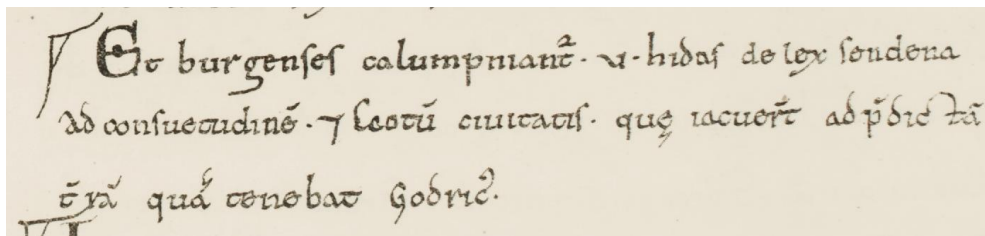 Et burgenses calumpniant᷑· v· hidas de lexsendena
ad consuetudinē· ⁊ scotū ciuitatis· quę iacuer̄t ad p̄dictā
t̄rā quā tenebat Godric᷒·